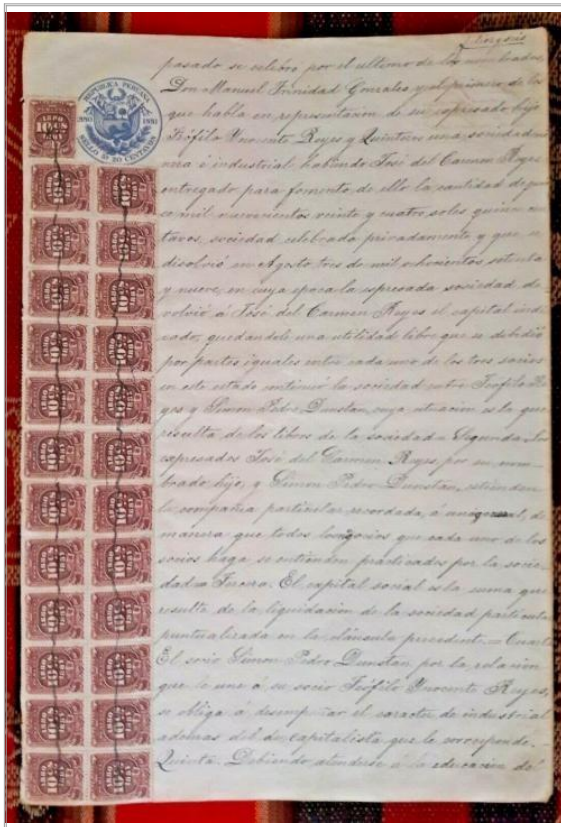 pasado se celebró por el ultimo de los nombrados
Don Manuel Trinidad Gonzales y el primero de los
que habla en representacion de su espresado hijo
Teófilo Ynocente Reyes y Quintero una sociedad
é industrial habiendo José del Carmen Reyes
entregado para fomento de ello la cantidad de
mil novecientos veinte y cuatro soles, quince cen
tavos, sociedad celebrada privadamente y que se
disolvió en Agosto tres de mil ochocientos setenta
y nueve, en cuya época la espresada sociedad de
volvió á José del Carmen Reyes el capital indi
cado, quedandole una utilidad libre que se dividió
por partes iguales entre cada uno de los tres socios
en este estado continuó la sociedad entre Teofilo Re
yes y Simon Pedro Dunstan, cuya situacion es la que
resulta de los libros de la sociedad = Segunda. Los
espresados José del Carmen Reyes, por su nom-
brado hijo, y Simon Pedro Dunstan, estienden
la compañia particular recordada, á una general, de
manera que todos los negocios que cada uno de los
socios haga se entienden practicados por la socie
dad = Tercera. El capital social es la suma que
resulte de la liquidacion de la sociedad particular
puntualizada en la cláusula precedente. = Cuarta
El socio Simon Pedro Dunstan por la relacion
que le une á su socio Teófilo Ynocente Reyes,
se obliga á desempeñar el caracter de industrial
ademas del de capitalista que le corresponde.
Quinta. Debiendo atenderse á la educacion del
REPUBLICA PERUANA
SELLO 5º 20 CENTAVOS